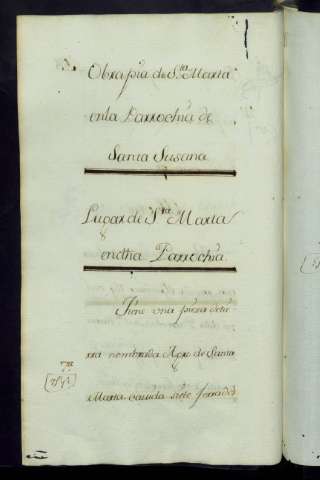 Obra pia de Sta. Marta
enla Parrochia de
Santa Susana
Lugar de Sta. Marta
en dha Parrochia.
Tiene una pieza de tie-
rra nombrada Agra de Santa
Marta